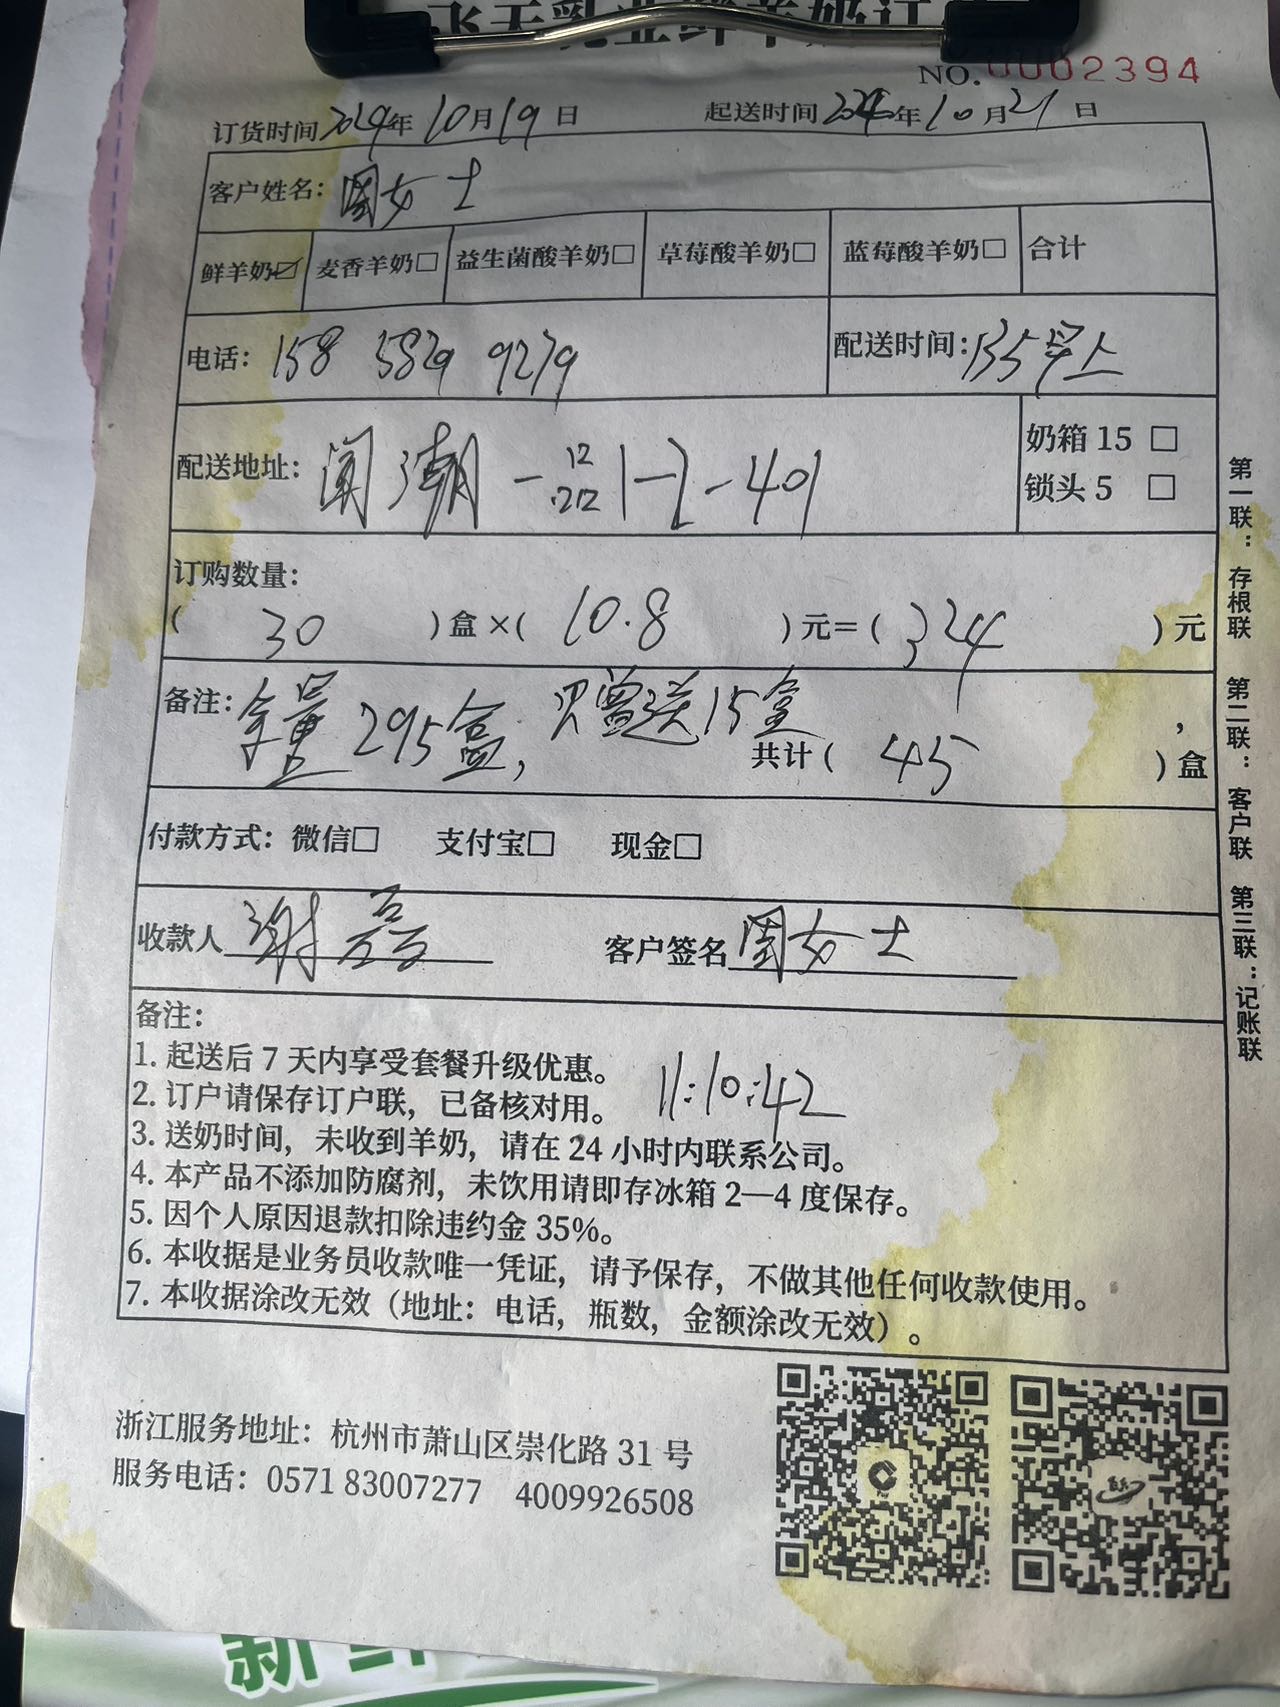 飞天乳业鲜羊奶订
NO.0002394
订货时间2024年10月19日 起送时间2024年10月21日
客户姓名：周女士
鲜羊奶☑ 麦香羊奶□ 益生菌酸羊奶□ 草莓酸羊奶□ 蓝莓酸羊奶□ 合计
电话：158 5829 9279 配送时间：135早上
配送地址：闻潮一品 1-2-401
奶箱 15 □
锁头 5 □
订购数量：
( 30 )盒×( 10.8 )元＝( 324 )元
备注：余量295盒， 只曾送15盒，
共计( 45 )盒
付款方式：微信□ 支付宝□ 现金□
收款人 谢磊 客户签名 周女士
备注：
1. 起送后 7 天内享受套餐升级优惠。
2. 订户请保存订户联，已备核对用。 11:10:42
3. 送奶时间，未收到羊奶，请在 24 小时内联系公司。
4. 本产品不添加防腐剂，未饮用请即存冰箱 2—4 度保存。
5. 因个人原因退款扣除违约金 35%。
6. 本收据是业务员收款唯一凭证，请予保存，不做其他任何收款使用。
7. 本收据涂改无效（地址：电话，瓶数，金额涂改无效）。
第一联：存根联 第二联：客户联 第三联：记账联
浙江服务地址：杭州市萧山区崇化路 31 号
服务电话：0571 83007277 4009926508
新鲜